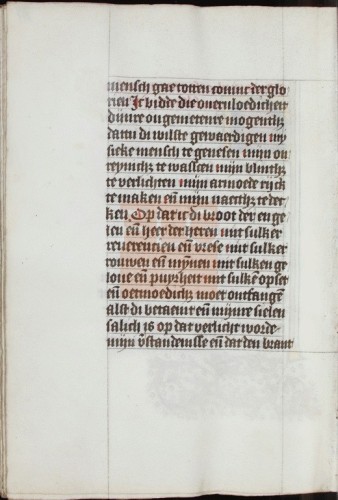 mensch gae totten coninc der glo
rien Ic bidde die overvloedicheit
dijnre ongemetenre mogenth;
dattu di wilste gewaerdigen my
sieke mensch te genesen mijn on
reynich; te wasschen mijn blinth;
te verlichten mijn armoede rijck
te maken en̄ mijn naecth; te dec
ken Op dat ic di broot der enge
len en̄ heer der heren mit sulker
reverencien en̄ vrese mit sulker
rouwen en̄ mynnen mit sulken ge
love en̄ puyrheit mit sulkē opset
en̄ oetmoedich; moet ontfangē
alst di betaemt en̄ mijnre sielen
salich is op dat verlicht worde
mijn v̄standenisse en̄ dat den brant